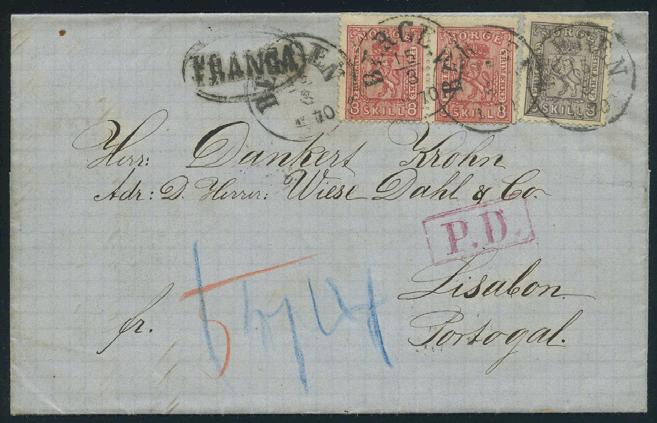 FRANCA
BERGEN
BERGEN
NORGE
8 SKILL 8
8 SKILL 8
SKILL
Herr: Dankert Krohn
Adr: D. Herrer: Wiese Dahl & Co.
P.D.
Lisabon.
fr.
Portogal.